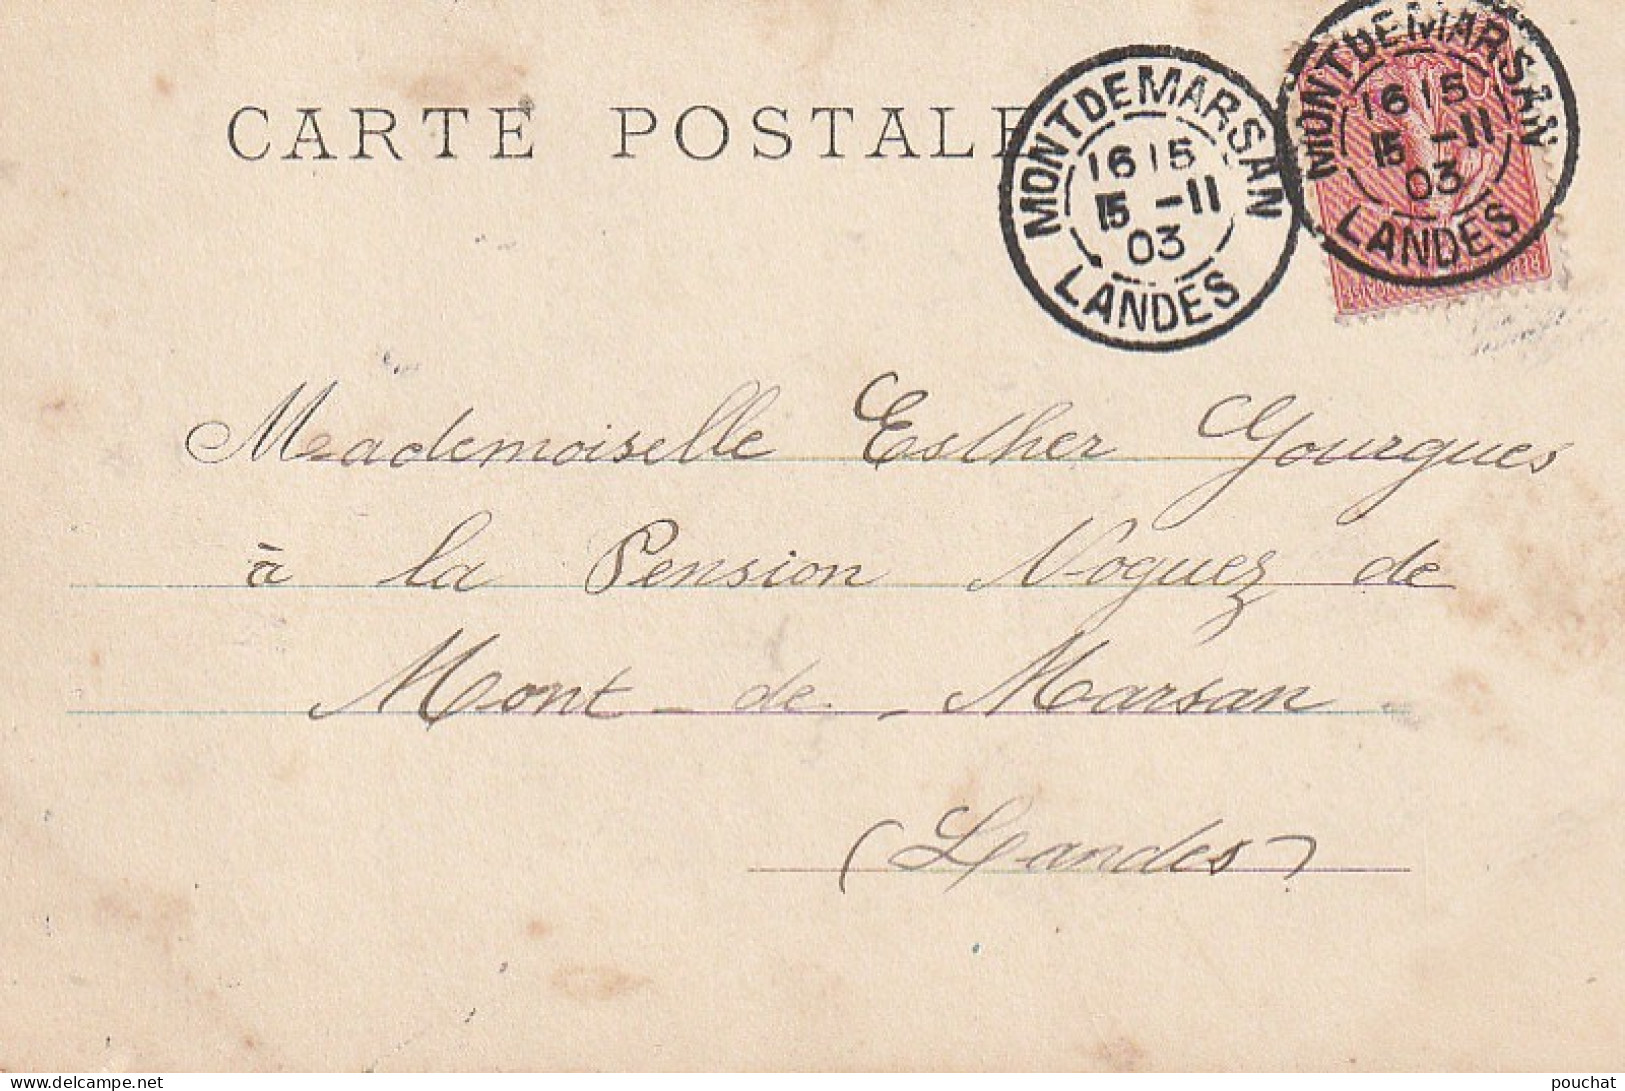 CARTE POSTALE
MONT DE MARSAN
16 15
15 -11
03
LANDES
MONT DE MARSAN
16 15
15 -11
03
LANDES
Mademoiselle Esther Gourgues
à la Pension Noguez de
Mont-de-Marsan
(Landes)
www.delcampe.net
pouchat